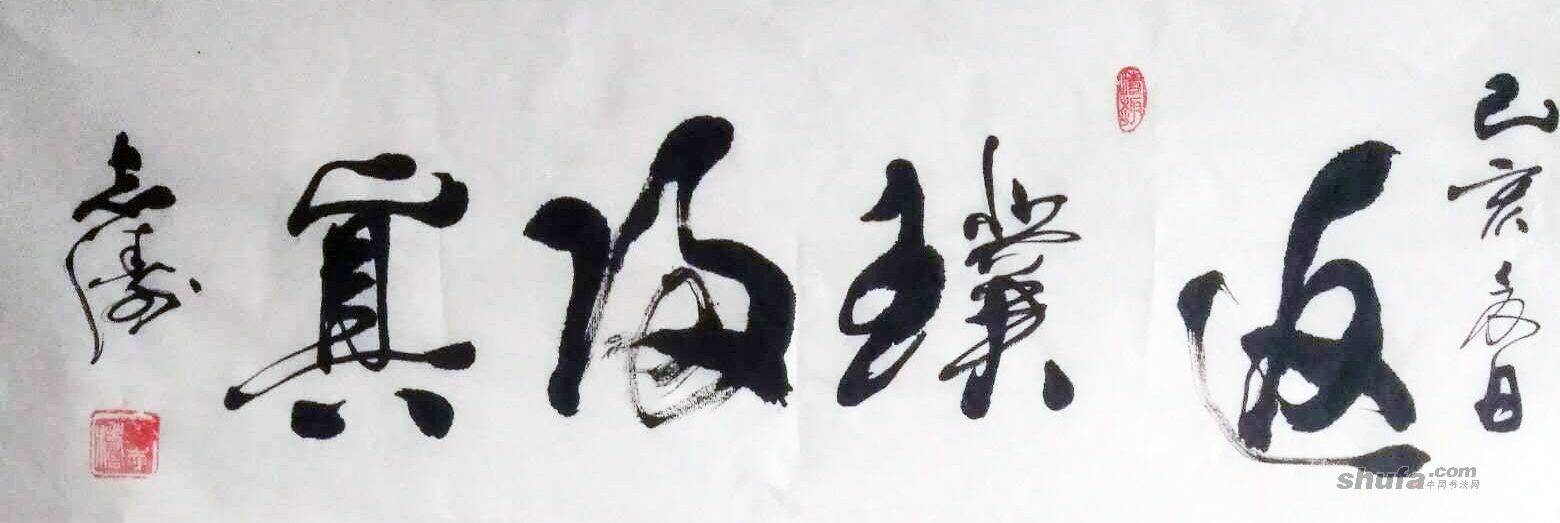 己亥冬日
返璞歸真
志濤
shufa.com
中国书法网